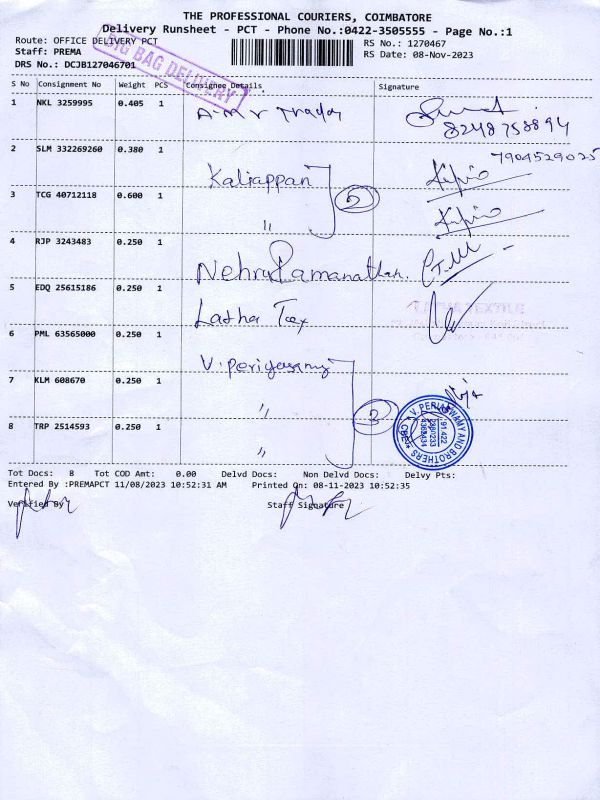 THE PROFESSIONAL COURIERS, COIMBATORE
Delivery Runsheet - PCT - Phone No.:0422-3505555 - Page No.:1
Route: OFFICE DELIVERY PCT
RS No.: 1270467
Staff: PREMA
RS Date: 08-Nov-2023
DRS No.: DCJB127046701
BIG BAG DELIVERY
S No Consignment No Weight PCS Consignee Details Signature
1 NKL 3259995 0.405 1 A.M.V
8248758894
2 SLM 332269260 0.380 1 Kaliappan
7904529025
3 TCG 40712118 0.600 1 " 2
4 RJP 3243483 0.250 1 Nehru Ramanathan.
5 EDQ 25615186 0.250 1 Latha Tex
LATHA TEXTILE
6 PML 63565000 0.250 1 V. periyasamy
7 KLM 608670 0.250 1 " 3
V. PERIASWAMY AND BROTHERS
CBE
8 TRP 2514593 0.250 1 "
Tot Docs: 8 Tot COD Amt: 0.00 Delvd Docs: Non Delvd Docs: Delvy Pts:
Entered By :PREMAPCT 11/08/2023 10:52:31 AM Printed On: 08-11-2023 10:52:35
Verified By Staff Signature